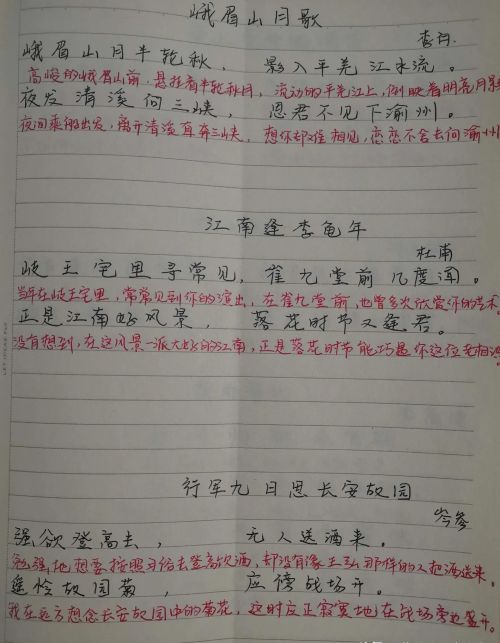 峨眉山月歌
李白
峨眉山月半轮秋， 影入平羌江水流。
高峻的峨眉山前，悬挂着半轮秋月，流动的平羌江上，倒映着明亮月影
夜发清溪向三峡， 思君不见下渝州。
夜间乘船出发，离开清溪直奔三峡，想你却难相见，恋恋不舍去向渝州
江南逢李龟年
杜甫
岐王宅里寻常见，崔九堂前几度闻。
当年在岐王宅里，常常见到你的演出，在崔九堂前，也曾多次欣赏你的艺术。
正是江南好风景， 落花时节又逢君。
没有想到，在这风景一派大好的江南，正是落花时节能巧遇你这位老相
行军九日思长安故园
岑参
强欲登高去， 无人送酒来。
勉强地想要按照习俗去登高饮酒，却没有像王弘那样的人把酒送来。
遥怜故园菊， 应傍战场开。
我在远方想念长安故园中的菊花，这时应正寂寞地在战场旁边盛开。